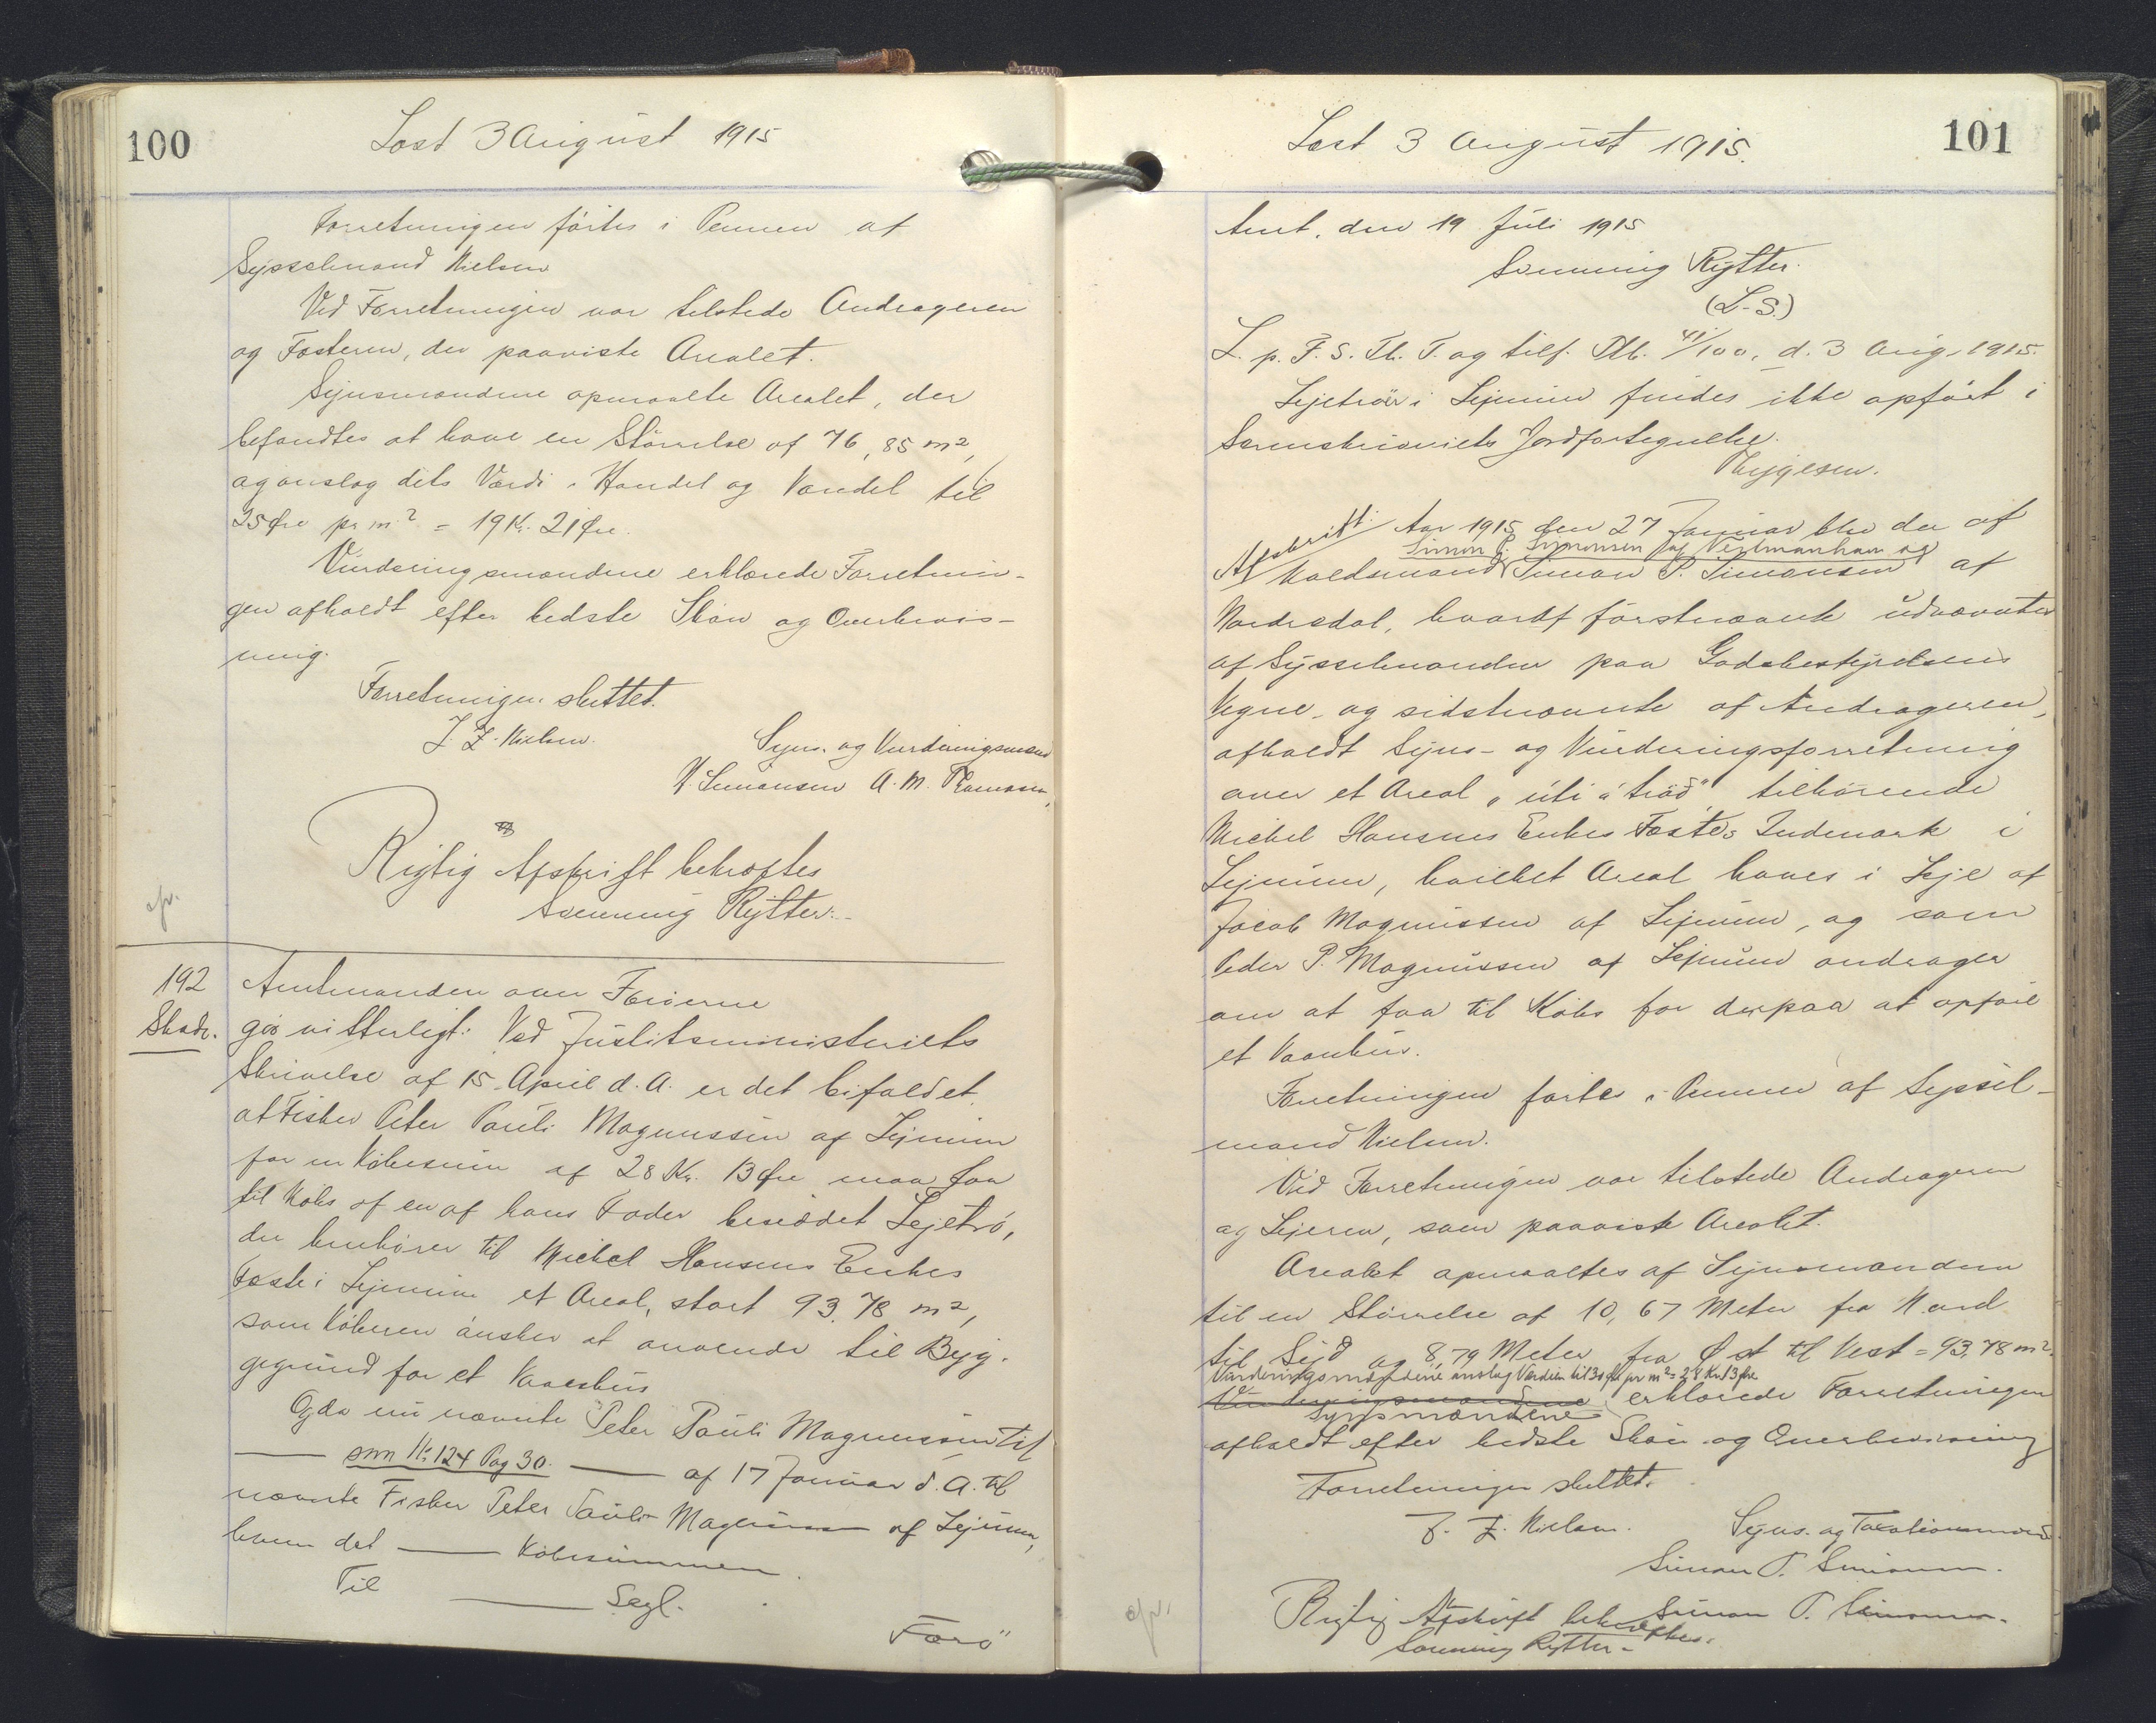 100
Læst 3 August 1915
Forretningen førtes i Pennen af
Sysselmand Nielsen
Ved Forretningen var tilstede Andrageren
og Fæsteren, der paaviste Arealet.
Synsmændene opmaalte Arealet, der
befandtes at have en Størrelse af 76,85 m²,
og anslog dets Værdi i Handel og Vandel til
25 Øre pr m² = 19 Kr. 21 Øre.
Vurderingsmændene erklærede Forretnin-
gen afholdt efter bedste Skøn og Overbevis-
ning.
Forretningen sluttet.
J. Z. Nielsen.
Syns. og Vurderingsmænd
A. M. Thomasen,
Rigtig Afskrift bekræftes
Svenning Rytter.
192
Skøde.
Amtmanden over Færøerne
gør vitterligt: Ved Justitsministeriets
Skrivelse af 15 April d. A. er det bifaldet,
at Fisker Peter Pauli Magnussen af Lejnum
for en Købesum af 28 Kr. 13 Øre maa faa
til Købs af en af hans Fader besiddet Lejetrø,
der henhører til Michel Hansens Enkes
Fæste i Lejnum et Areal, stort 93,78 m²,
som Køberen ønsker at anvende til Byg-
gegrund for et Vaaeshus
Og da nu nævnte Peter Pauli Magnussen til
—— som №: 124 Pag 30. —— af 17 Januar d. A. til
nævnte Fisker Peter Pauli Magnussen af Lejnum,
hvem det —— Købesummen.
Til —— Segl.
Færø
101
Læst 3 August 1915.
Amt, den 19 Juli 1915
Svenning Rytter.
(L. S.)
L. p. F. S. Th. T. og tilf. Ptb. 41/100, d. 3 Aug. 1915.
Lejetrør i Lejnum findes ikke opført i
Sorenskriveriets Jordfortegnelse.
Afskrift: Aar 1915 den 27 Januar blev der af
Simon P. Simonsen af Vestmanhavn og
Simon P. Simonsen af
hvoraf førstnævnte udnævntes
af Sysselmanden paa Godsbestyrelsens
Vegne og sidstnævnte af Andrageren,
afholdt Syns- og Vurderingsforretning
over et Areal „úti á trøð“ tilhørende
Michel Hansens Enkes Fæstes Indmark i
Lejnum, hvilket Areal haves i Leje af
Jacob Magnussen af Lejnum, og som
Peder P. Magnussen af Lejnum andrager
om at faa til Købs for derpaa at opføre
et Vaanhus.
Forretningen førtes i Pennen af Syssel-
mand Nielsen.
Ved Forretningen var tilstede Andrageren
og Lejeren, som paaviste Arealet.
Arealet opmaaltes af Synsmændene
til en Størrelse af 10,67 Meter fra Nord
til Syd og 8,79 Meter fra Øst til Vest = 93,78 m².
Vurderingsmændene anslog Værdien til 30 Øre pr m² = 28 Kr 13 Øre
Vurderingsmændene erklærede Forretningen
Synsmændene
afholdt efter bedste Skøn og Overbevisning
Forretningen sluttet.
J. Z. Nielsen.
Syns. og Taxationsmænd
Simon P. Simonsen.
Simon P. Simonsen.
Rigtig Afskrift bekræftes.
Svenning Rytter.